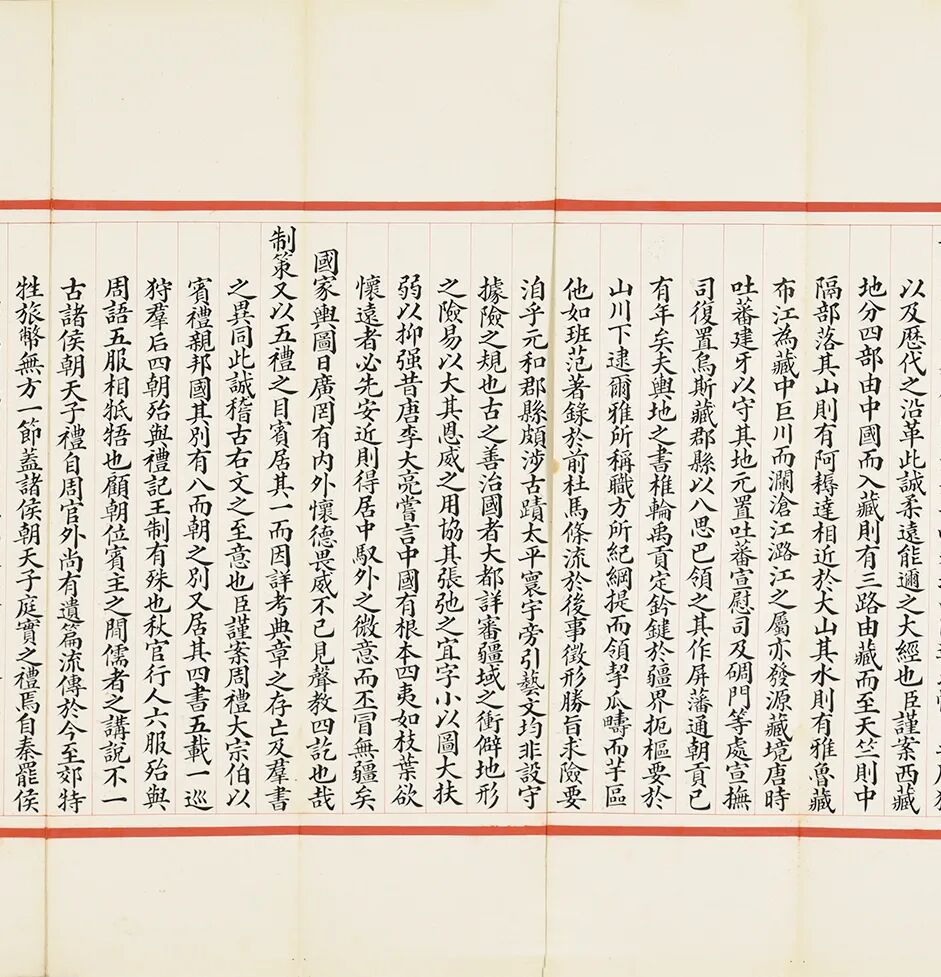 以及歷代之沿革此誠柔遠能邇之大經也臣謹案西藏
地分四部由中國而入藏則有三路由藏而至天竺則中
隔部落其山則有阿耨達相近於犬山其水則有雅魯藏
布江為藏中巨川而瀾滄江潞江之屬亦發源藏境唐時
吐蕃建牙以守其地元置吐蕃宣慰司及碉門等處宣撫
司復置烏斯藏郡縣以八思巴領之其作屏藩通朝貢已
有年矣夫輿地之書椎輪禹貢定鈐鍵於疆界扼樞要於
山川下逮爾雅所稱職方所紀綱提而領挈瓜疇而芋區
他如班范著錄於前杜馬條流於後事徵形勝旨求險要
洎乎元和郡縣頗涉古蹟太平寰宇旁引藝文均非設守
據險之規也古之善治國者大都詳審疆域之衝僻地形
之險易以大其恩威之用協其張弛之宜字小以圖大扶
弱以抑强昔唐李大亮嘗言中國有根本四夷如枝葉欲
懷遠者必先安近則得居中馭外之微意而丕冒無疆矣
國家輿圖日廣罔有內外懷德畏威不已見聲教四訖也哉
制策又以五禮之目賓居其一而因詳考典章之存亡及羣書
之異同此誠稽古右文之至意也臣謹案周禮大宗伯以
賓禮親邦國其別有八而朝之別又居其四書五載一巡
狩羣后四朝殆與禮記王制有殊也秋官行人六服殆與
周語五服相牴牾也顧朝位賓主之間儒者之講說不一
古諸侯朝天子禮自周官外尚有遺篇流傳於今至郊特
牲旅幣無方一節蓋諸侯朝天子庭實之禮焉自秦罷侯